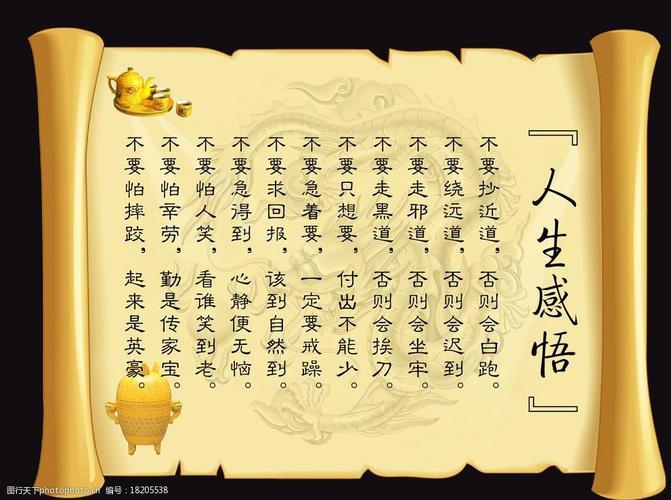 『人生感悟』
不要抄近道，否则会白跑。
不要绕远道，否则会迟到。
不要走邪道，否则会坐牢。
不要走黑道，否则会挨刀。
不要只想要，付出不能少。
不要急着要，一定要戒躁。
不要求回报，该到自然到。
不要急得到，心静便无恼。
不要怕人笑，看谁笑到老。
不要怕辛劳，勤是传家宝。
不要怕摔跤，起来是英豪。
图行天下 photophoto.cn 编号：18205538